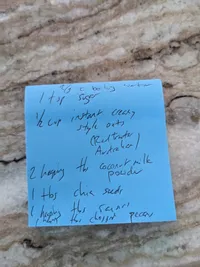 1 tsp sugar
1/2 cup instant creamy
style oats
(Red Tractor
Australia)
2 heaping tbs coconut milk
powder
1 tbs chia seeds
1 heaping tbs
heaping tbs chopped pecans